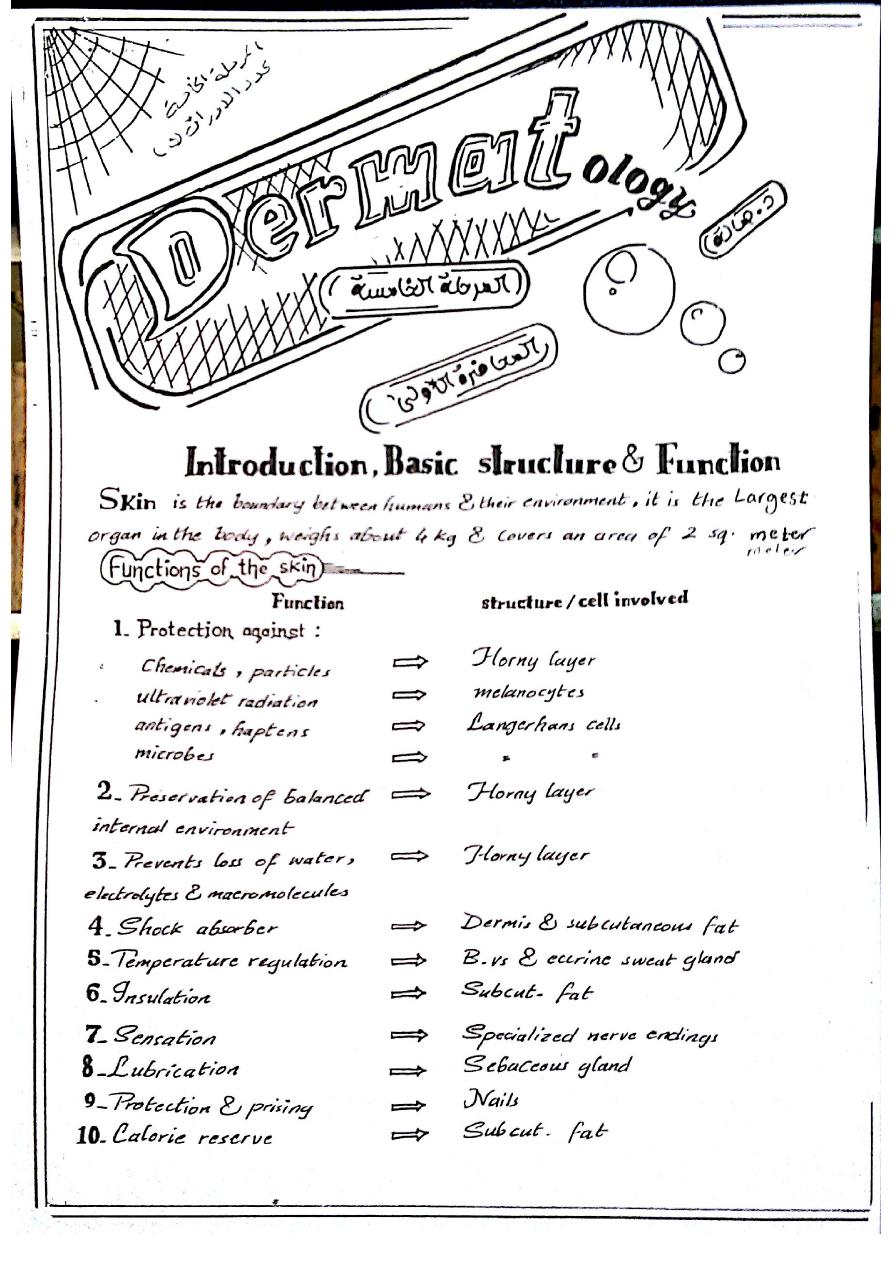 المرحلة الخامسة
عدد الاوراق (
Dermatology
د.
المرحلة الخامسة
المحاضرة الاولى
Introduction, Basic structure & Function
Skin is the boundary between humans & their environment, it is the Largest
organ in the body, weighs about 4 kg & covers an area of 2 sq. meter
meter
Functions of the skin
Function structure / cell involved
1. Protection against :
Chemicals, particles ⇨ Horny layer
ultraviolet radiation ⇨ melanocytes
antigens, haptens ⇨ Langerhans cells
microbes ⇨ " "
2- Preservation of balanced ⇨ Horny layer
internal environment
3- Prevents loss of water, ⇨ Horny layer
electrolytes & macromolecules
4- Shock absorber ⇨ Dermis & subcutaneous fat
5- Temperature regulation ⇨ B.vs & eccrine sweat gland
6- Insulation ⇨ Subcut- fat
7- Sensation ⇨ Specialized nerve endings
8- Lubrication ⇨ Sebaceous gland
9- Protection & prising ⇨ Nails
10- Calorie reserve ⇨ Subcut. fat